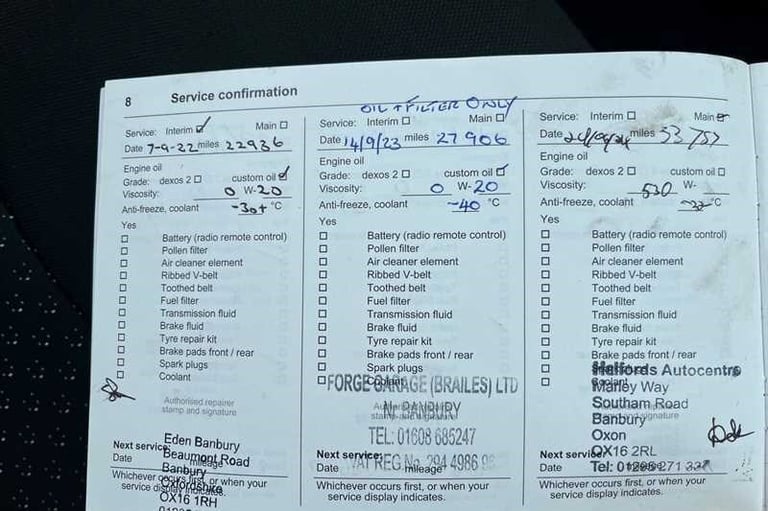 8 Service confirmation
Service: Interim ☑ Main ☐
Date 7-9-22 miles 22936
Engine oil
Grade: dexos 2 ☐ custom oil ☑
Viscosity: 0 W-20
Anti-freeze, coolant -30+ °C
Yes
☐ Battery (radio remote control)
☐ Pollen filter
☐ Air cleaner element
☐ Ribbed V-belt
☐ Toothed belt
☐ Fuel filter
☐ Transmission fluid
☐ Brake fluid
☐ Tyre repair kit
☐ Brake pads front / rear
☐ Spark plugs
☐ Coolant
Authorised repairer
stamp and signature
Eden Banbury
Beaumont Road
Banbury
Oxfordshire
OX16 1RH
Next service:
Date mileage
Whichever occurs first, or when your
service display indicates.
OIL + FILTER ONLY
Service: Interim ☐ Main ☐
Date 14/9/23 miles 27906
Engine oil
Grade: dexos 2 ☐ custom oil ☑
Viscosity: 0 W-20
Anti-freeze, coolant -40 °C
Yes
☐ Battery (radio remote control)
☐ Pollen filter
☐ Air cleaner element
☐ Ribbed V-belt
☐ Toothed belt
☐ Fuel filter
☐ Transmission fluid
☐ Brake fluid
☐ Tyre repair kit
☐ Brake pads front / rear
☐ Spark plugs
☐ Coolant
FORGE GARAGE (BRAILES) LTD
Nr BANBURY
TEL: 01608 685247
VAT REG No. 294 4986
Next service:
Date mileage
Whichever occurs first, or when your
service display indicates.
Service: Interim ☐ Main ☑
Date miles 33757
Engine oil
Grade: dexos 2 ☐ custom oil ☐
Viscosity: 530 W-
Anti-freeze, coolant °C
Yes
☐ Battery (radio remote control)
☐ Pollen filter
☐ Air cleaner element
☐ Ribbed V-belt
☐ Toothed belt
☐ Fuel filter
☐ Transmission fluid
☐ Brake fluid
☐ Tyre repair kit
☐ Brake pads front / rear
☐
☐
Halfords Autocentre
Marley Way
Southam Road
Banbury
Oxon
OX16 2RL
Tel: 01295 271
Next service:
Date mileage
Whichever occurs first, or when your
service display indicates.